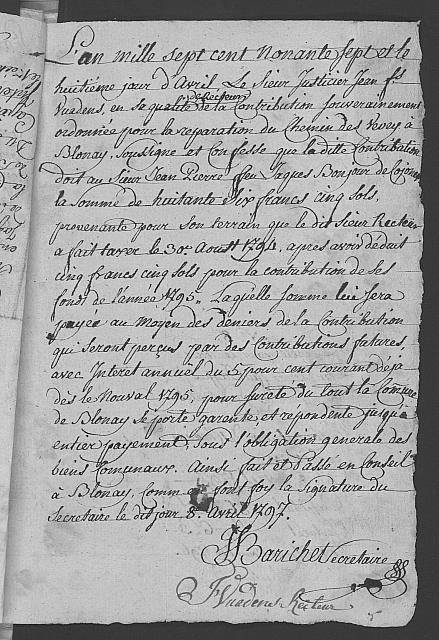 L'an mille sept cent Nonante sept et le
huitième jour d'Avril Le Sieur Justicier Jean fs
Vuadens, en sa qualité de Recteur de la Contribution Souverainement
ordonnée pour la reparation du Chemin des Vevey à
Blonay, Soussigne et Confesse que la ditte Contribution
doit au Sieur Jean Pierre feu Jaques Bonjour de
la Somme de huitante dix francs Cinq Sols,
provenante pour Son terrein que le dit Sieur Recteur
a fait taxer le 30e Aoust 1794, apres avoir déduit
Cinq francs Cinq Sols pour la contribution de Ses
fonds de l'année 1795. Laquelle Somme lui Sera
payée au Moyen des deniers de la Contribution
qui Seront perçus par des Contributions futures,
avec Interet annuel du 5 pour cent courant déja
dès le Nouval 1795, pour Sureté du tout la Comune
de Blonay Se porte garente et repondente jusqu'a
entier payement, Sous l'obligation generale des
biens Comunaux. Ainsi fait et Passé en Conseil
à Blonay, Comme en font foy la Signature du
Secretaire le dit jour 8e Avril 1797.
Barichet Secretaire
F Vuadens Recteur